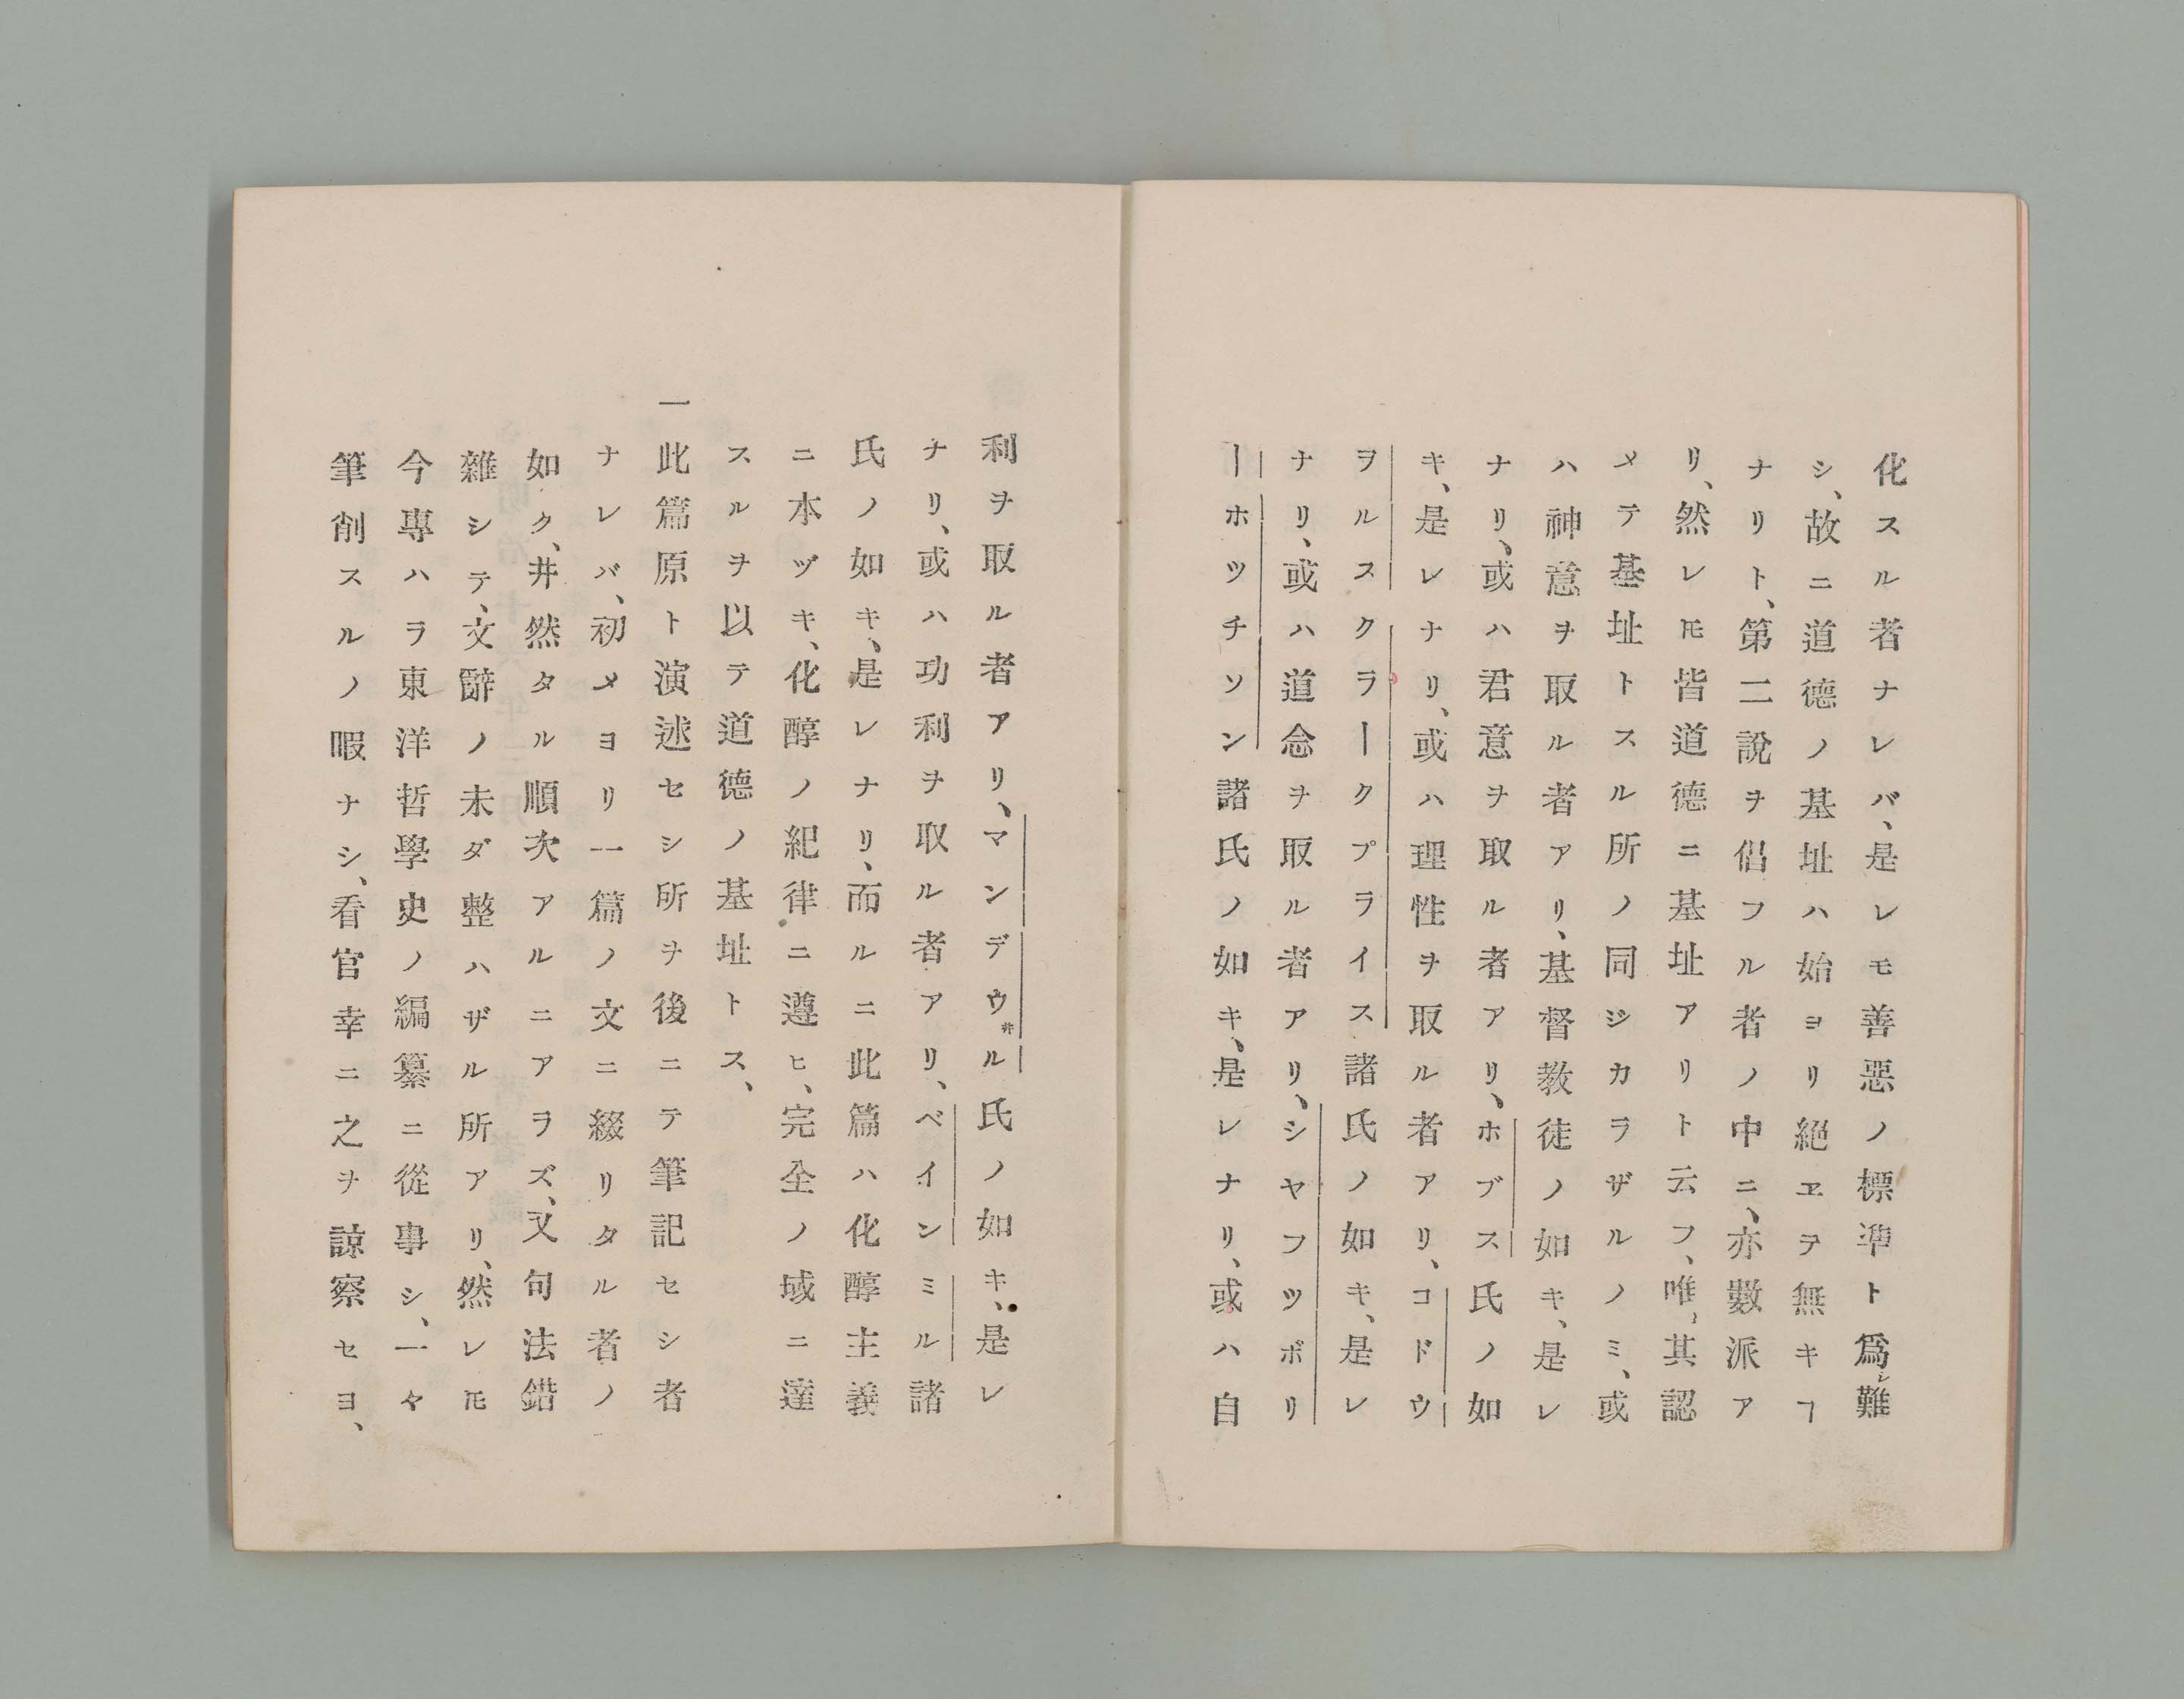 化スル者ナレバ、是レモ善惡ノ標準ト爲レ難
シ、故ニ道德ノ基址ハ始ヨリ絕ヱテ無キヿ
ナリト、第二說ヲ倡フル者ノ中ニ、亦數派ア
リ、然レ𪜈皆道德ニ基址アリト云フ、唯、其認
メテ基址トスル所ノ同ジカラザルノミ、或
ハ神意ヲ取ル者アリ、基督敎徒ノ如キ、是レ
ナリ、或ハ君意ヲ取ル者アリ、ホブス氏ノ如
キ、是レナリ、或ハ理性ヲ取ル者アリ、コドウ
ヲルスクラークプライス諸氏ノ如キ、是レ
ナリ、或ハ道念ヲ取ル者アリ、シヤフツボリ
ーホツチソン諸氏ノ如キ、是レナリ、或ハ自
利ヲ取ル者アリ、マンデウ井ル氏ノ如キ、是レ
ナリ、或ハ功利ヲ取ル者アリ、ベインミル諸
氏ノ如キ、是レナリ、而ルニ此篇ハ化醇主義
ニ本ヅキ、化醇ノ紀律ニ遵ヒ、完全ノ域ニ達
スルヲ以テ道德ノ基址トス、
一此篇原ト演述セシ所ヲ後ニテ筆記セシ者
ナレバ、初メヨリ一篇ノ文ニ綴リタル者ノ
如ク、井然タル順次アルニアヲズ、又句法錯
雜シテ、文辭ノ未ダ整ハザル所アリ、然レ𪜈
今專ハラ東洋哲學史ノ編纂ニ從事シ、一々
筆削スルノ暇ナシ、看官幸ニ之ヲ諒察セヨ、